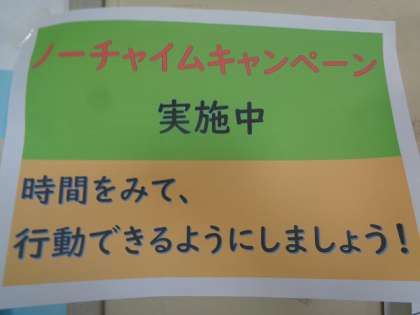 ノーチャイムキャンペーン
実施中
時間をみて、
行動できるようにしましょう！